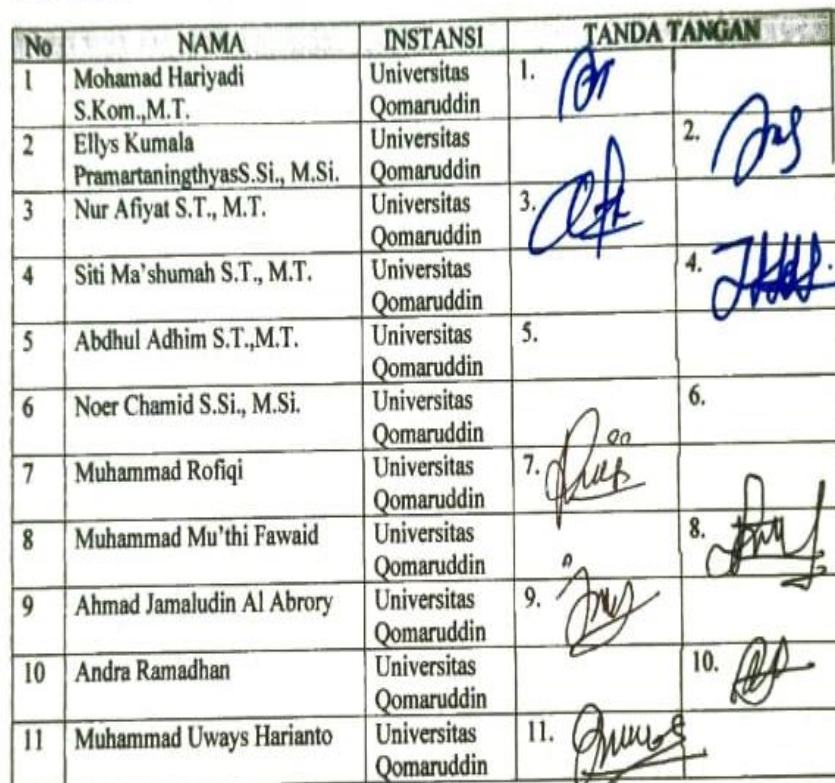 No NAMA INSTANSI TANDA TANGAN
1 Mohamad Hariyadi Universitas 1.
S.Kom.,M.T. Qomaruddin
2 Ellys Kumala Universitas 2.
PramartaningthyasS.Si., M.Si. Qomaruddin
3 Nur Afiyat S.T., M.T. Universitas 3.
Qomaruddin
4 Siti Ma'shumah S.T., M.T. Universitas 4.
Qomaruddin
5 Abdhul Adhim S.T.,M.T. Universitas 5.
Qomaruddin
6 Noer Chamid S.Si., M.Si. Universitas 6.
Qomaruddin
7 Muhammad Rofiqi Universitas 7.
Qomaruddin
8 Muhammad Mu'thi Fawaid Universitas 8.
Qomaruddin
9 Ahmad Jamaludin Al Abrory Universitas 9.
Qomaruddin
10 Andra Ramadhan Universitas 10.
Qomaruddin
11 Muhammad Uways Harianto Universitas 11.
Qomaruddin